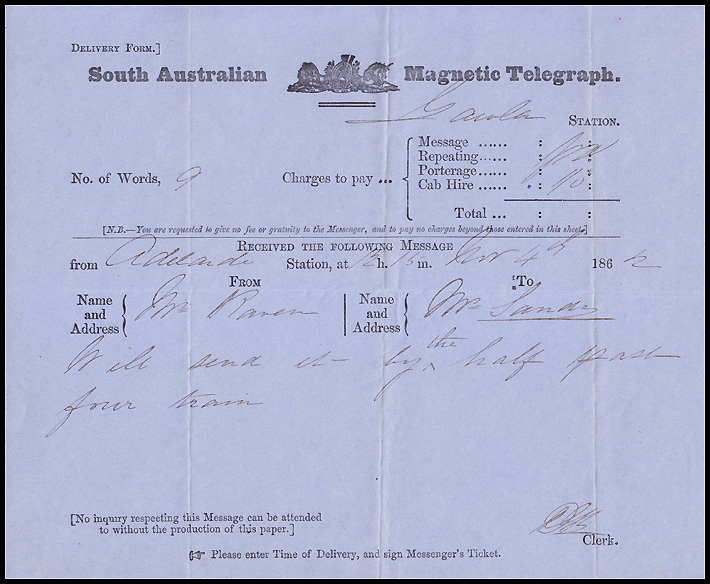 DELIVERY FORM.]
South Australian Magnetic Telegraph.
Gawler STATION.
No. of Words, 9 Charges to pay ...
Message ...... : :
Repeating...... : :
Porterage...... : :
Cab Hire ...... : :
Total ... : :
[N.B.—You are requested to give no fee or gratuity to the Messenger, and to pay no charges beyond those entered in this sheet.]
RECEIVED THE FOLLOWING MESSAGE
from Adelaide Station, at 12 h. 15 m. Nov 4th 1862
FROM TO
Name and Address Mr Raven
Name and Address Mr Sandy
Will send it by the half past
four train
[No inquiry respecting this Message can be attended
to without the production of this paper.]
Clerk.
☞ Please enter Time of Delivery, and sign Messenger's Ticket.